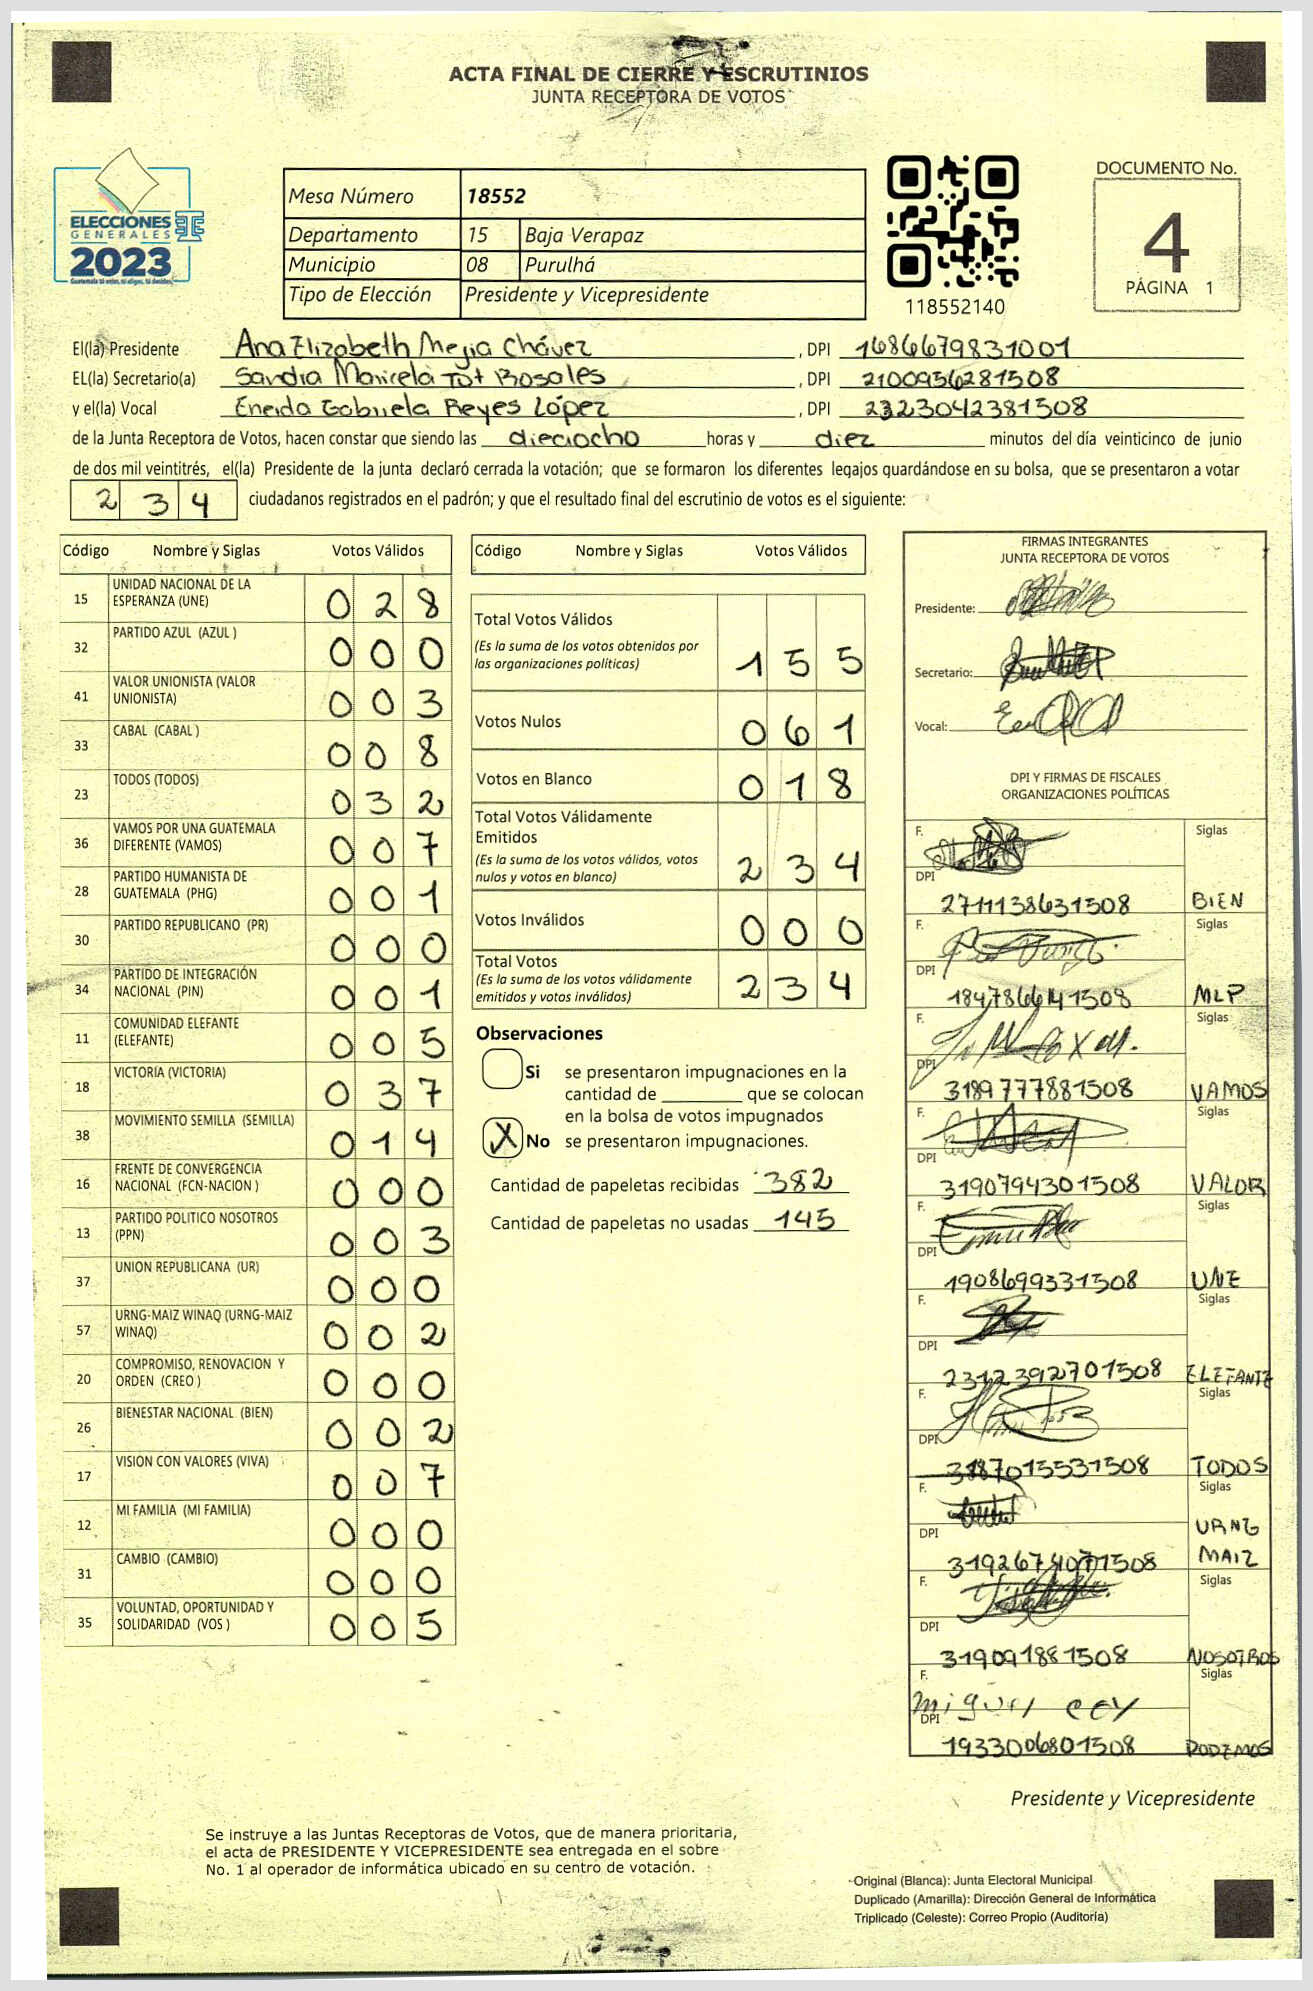 ACTA FINAL DE CIERRE Y ESCRUTINIOS
JUNTA RECEPTORA DE VOTOS
ELECCIONES
GENERALES
2023
Mesa Número 18552
Departamento 15 Baja Verapaz
Municipio 08 Purulhá
Tipo de Elección Presidente y Vicepresidente
118552140
DOCUMENTO No.
4
PÁGINA 1
El(la) Presidente Ana Elizabeth Mejia Chávez , DPI 1686679831001
EL(la) Secretario(a) Sandra Maricela Tot Rosales , DPI 2100956281508
y el(la) Vocal Eneida Gabriela Reyes López , DPI 2323042381508
de la Junta Receptora de Votos, hacen constar que siendo las dieciocho horas y diez minutos del día veinticinco de junio
de dos mil veintitrés, el(la) Presidente de la junta declaró cerrada la votación; que se formaron los diferentes legajos guardándose en su bolsa, que se presentaron a votar
234 ciudadanos registrados en el padrón; y que el resultado final del escrutinio de votos es el siguiente:
Código Nombre y Siglas Votos Válidos
15 UNIDAD NACIONAL DE LA ESPERANZA (UNE) 028
32 PARTIDO AZUL (AZUL ) 000
41 VALOR UNIONISTA (VALOR UNIONISTA) 003
33 CABAL (CABAL ) 008
23 TODOS (TODOS) 032
36 VAMOS POR UNA GUATEMALA DIFERENTE (VAMOS) 007
28 PARTIDO HUMANISTA DE GUATEMALA (PHG) 001
30 PARTIDO REPUBLICANO (PR) 000
34 PARTIDO DE INTEGRACIÓN NACIONAL (PIN) 001
11 COMUNIDAD ELEFANTE (ELEFANTE) 005
18 VICTORIA (VICTORIA) 037
38 MOVIMIENTO SEMILLA (SEMILLA) 014
16 FRENTE DE CONVERGENCIA NACIONAL (FCN-NACION ) 000
13 PARTIDO POLITICO NOSOTROS (PPN) 003
37 UNION REPUBLICANA (UR) 000
57 URNG-MAIZ WINAQ (URNG-MAIZ WINAQ) 002
20 COMPROMISO, RENOVACION Y ORDEN (CREO ) 000
26 BIENESTAR NACIONAL (BIEN) 002
17 VISION CON VALORES (VIVA) 007
12 MI FAMILIA (MI FAMILIA) 000
31 CAMBIO (CAMBIO) 000
35 VOLUNTAD, OPORTUNIDAD Y SOLIDARIDAD (VOS ) 005
Código Nombre y Siglas Votos Válidos
Total Votos Válidos 155
(Es la suma de los votos obtenidos por
las organizaciones políticas)
Votos Nulos 061
Votos en Blanco 018
Total Votos Válidamente
Emitidos 234
(Es la suma de los votos válidos, votos
nulos y votos en blanco)
Votos Inválidos 000
Total Votos 234
(Es la suma de los votos válidamente
emitidos y votos inválidos)
Observaciones
Si se presentaron impugnaciones en la
cantidad de ________ que se colocan
en la bolsa de votos impugnados
X No se presentaron impugnaciones.
Cantidad de papeletas recibidas 382
Cantidad de papeletas no usadas 145
FIRMAS INTEGRANTES
JUNTA RECEPTORA DE VOTOS
Presidente:
Secretario:
Vocal:
DPI Y FIRMAS DE FISCALES
ORGANIZACIONES POLÍTICAS
F. Siglas
DPI 2711138631508 BIEN
F. Siglas
DPI 1847866141508 MLP
F. Siglas
DPI 3189777881508 VAMOS
F. Siglas
DPI 3190794301508 VALOR
F. Siglas
DPI 1908699331508 UNE
F. Siglas
DPI 2312392701508 ELEFANTE
F. Siglas
DPI 3187015531508 TODOS
F. Siglas
DPI 3192674071508 URNG MAIZ
F. Siglas
DPI 3190911881508 NOSOTROS
F. Miguel Siglas
DPI 1933006801508 PODEMOS
Presidente y Vicepresidente
Se instruye a las Juntas Receptoras de Votos, que de manera prioritaria,
el acta de PRESIDENTE Y VICEPRESIDENTE sea entregada en el sobre
No. 1 al operador de informática ubicado en su centro de votación.
Original (Blanca): Junta Electoral Municipal
Duplicado (Amarilla): Dirección General de Informática
Triplicado (Celeste): Correo Propio (Auditoría)